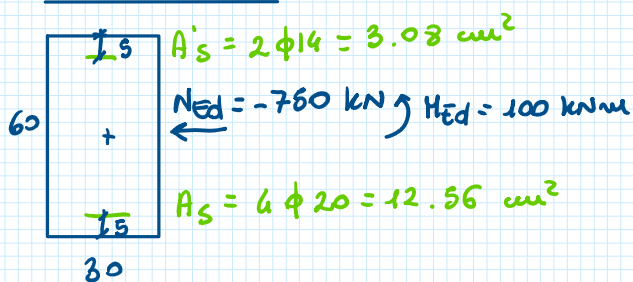 5
A's = 2 ϕ 14 = 3.08 cm²
60
N_Ed = -750 kN
M_Ed = 100 kNm
+
A_s = 4 ϕ 20 = 12.56 cm²
5
30